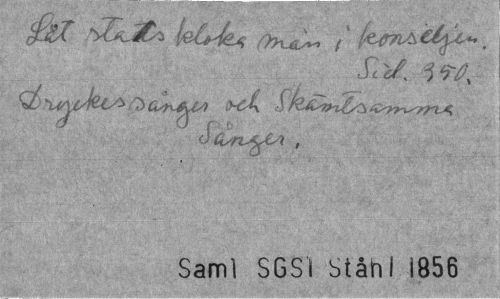 Låt statskloka män i konseljen.
Sid. 350.
Dryckessånger och Skämtsamma
Sånger.
Saml SGS1 Ståhl 1856